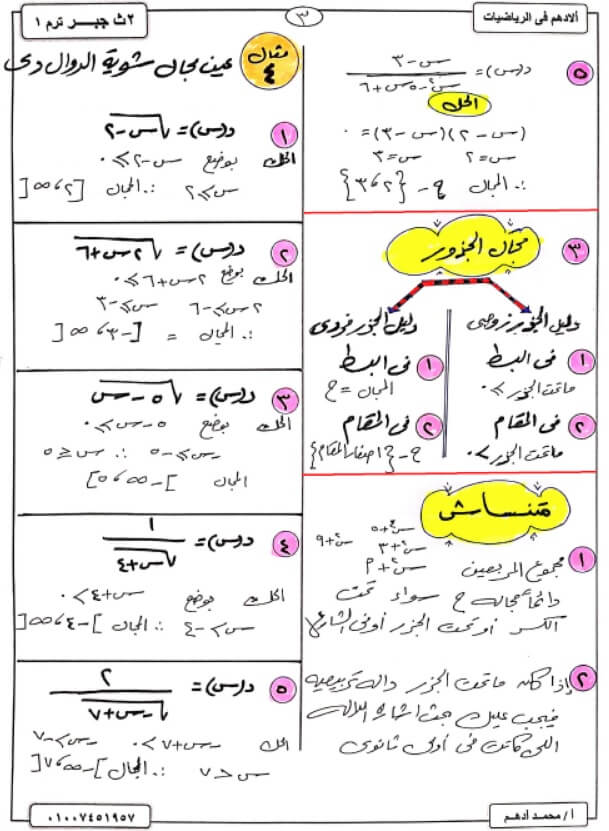 الادهم فى الرياضيات
٣
٢ث جبــر ترم ١
٥ د(س) = (س-٣)/(س²-٥س+٦)
الحل
(س-٢)(س-٣) = ٠
س=٢ س=٣
∴ المجال ح - {٢، ٣}
٣ مجال الجذور
دليل الجذر زوجى
١ فى البسط
ماتحت الجذر ≥ ٠
٢ فى المقام
ماتحت الجذر > ٠
دليل الجذر فردى
١ فى البسط
المجال = ح
٢ فى المقام
ح - {اصفار المقام}
متنساش
س²+٣
س²+٩
١ مجموع المربعين
دائماً مجاله ح سواء تحت
الكسر أو تحت الجذر أو فى الشارع
٢ إذا كان ماتحت الجذر دالة تربيعية
فيجب عليك بحث اشارة الدالة
اللى كانت فى أولى ثانوى
مثال ٤ عين مجال شوية الدوال دى
١ د(س) = √(س-٢)
الحل بوضع س-٢ ≥ ٠
س ≥ ٢ ∴ المجال [٢، ∞[
٢ د(س) = √(٢س+٦)
الحل بوضع ٢س+٦ ≥ ٠
٢س ≥ -٦ س ≥ -٣
∴ المجال = [-٣، ∞[
٣ د(س) = √(٥-س)
الحل بوضع ٥-س ≥ ٠
-س ≥ -٥ ∴ س ≤ ٥
المجال ]-∞، ٥]
٤ د(س) = ١/√(س+٤)
الحل بوضع س+٤ > ٠
س > -٤ ∴ المجال ]-٤، ∞[
٥ د(س) = ٢/√(-س+٧)
الحل -س+٧ > ٠ -س > -٧
س < ٧ ∴ المجال ]-∞، ٧[
أ / محمـد أدهـم
٠١٠٠٧٤٥١٩٥٧